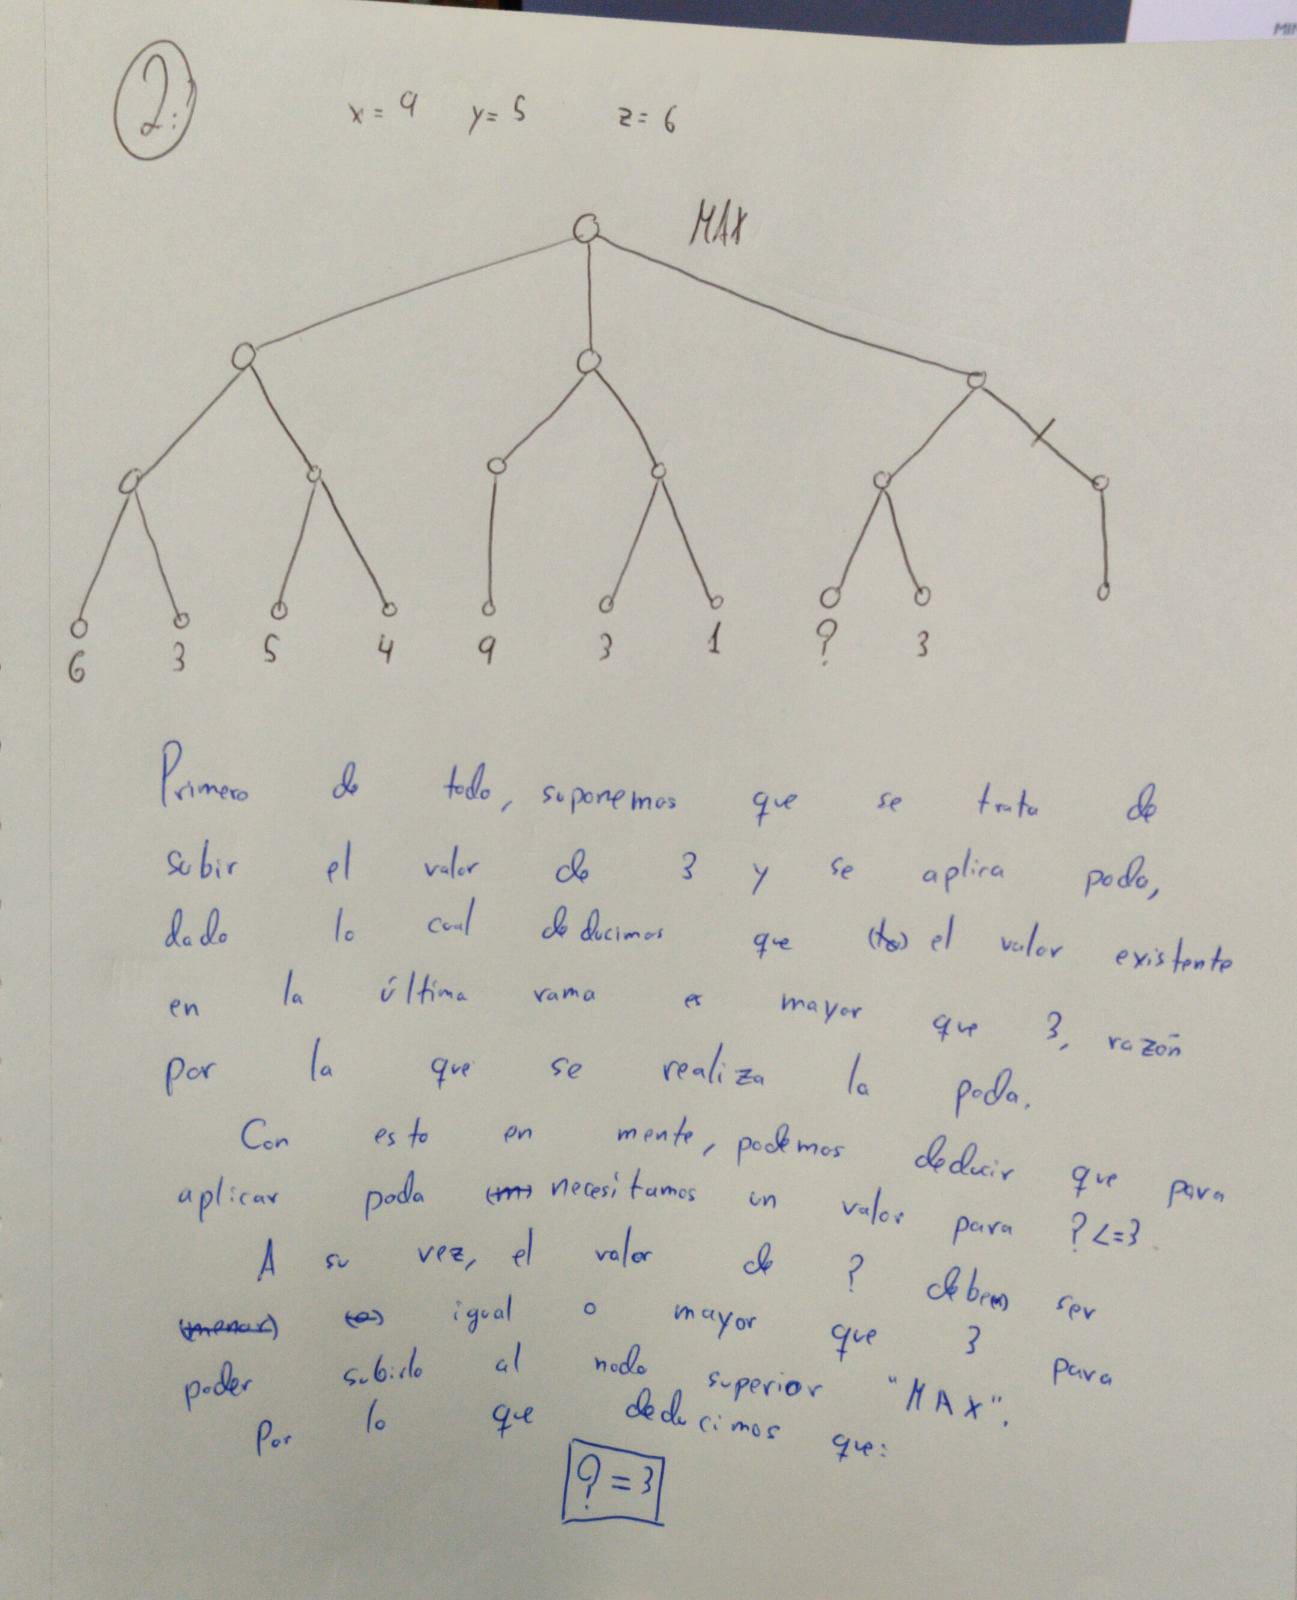 MIN
2:
x=9 y=5 z=6
MAX
6 3 5 4 9 3 1 ? 3
Primero de todo, suponemos que se trata de
subir el valor de 3 y se aplica poda,
dado lo cual deducimos que el valor existente
en la última rama es mayor que 3, razón
por la que se realiza la poda.
Con esto en mente, podemos deducir que para
aplicar poda (m) necesitamos un valor para ?<=3.
A su vez, el valor de ? debe(n) ser
(menor) (o) igual o mayor que 3 para
poder subirlo al nodo superior "MAX".
Por lo que deducimos que:
?=3